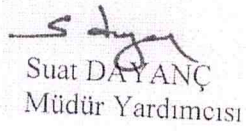 Suat DAYANÇ
Müdür Yardımcısı